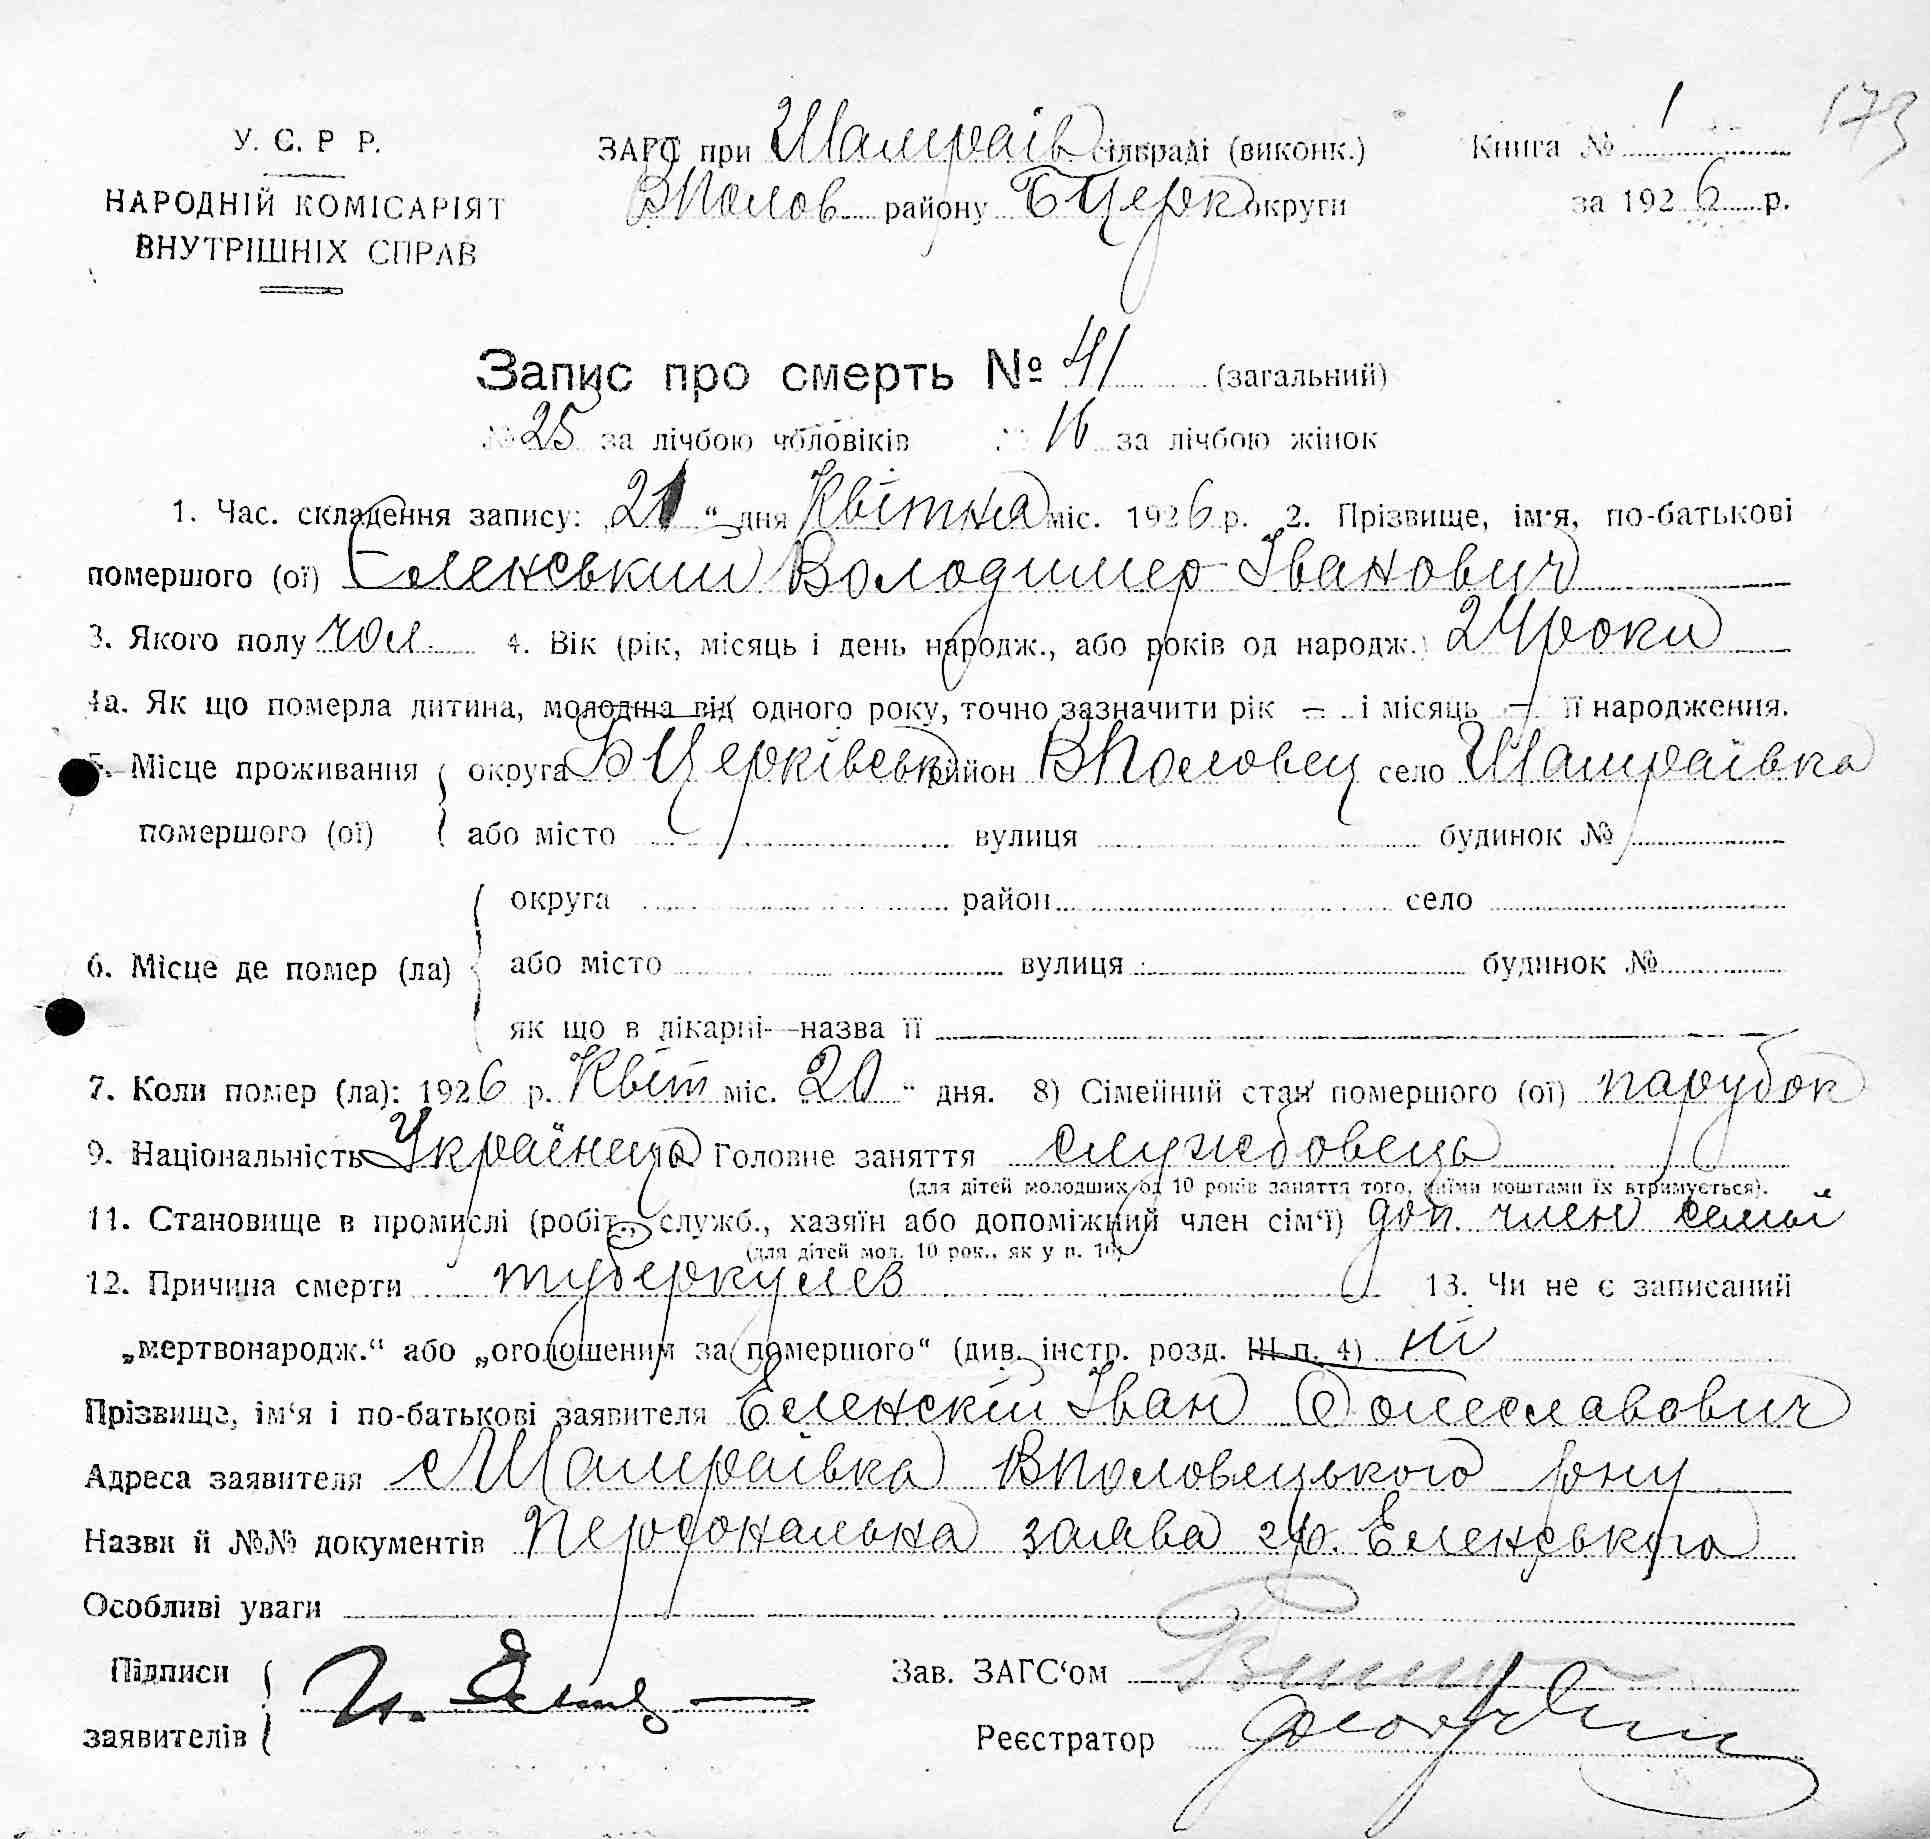 У. С. Р Р.
НАРОДНІЙ КОМІСАРІЯТ
ВНУТРІШНІХ СПРАВ
ЗАГС при Шамраїв сільраді (виконк.)
ВПолов району БЦерк округи
Книга № 1
173
за 1926 р.
Запис про смерть № 41 (загальний)
№ 25 за лічбою чоловіків № 16 за лічбою жінок
1. Час. складення запису: 21 " дня Квітня міс. 1926 р. 2. Прізвище, ім'я, по-батькові
помершого (ої) Еленський Володимер Іванович
3. Якого полу чол. 4. Вік (рік, місяць і день народж., або років од народж.) 24 роки
4а. Як що померла дитина, молодша від одного року, точно зазначити рік – і місяць – її народження.
5. Місце проживання округа БЦерківськ район ВПоловец село Шамраївка
помершого (ої) або місто вулиця будинок №
округа район село
6. Місце де помер (ла) або місто вулиця будинок №
як що в лікарні—назва її
7. Коли помер (ла): 1926 р. Квіт міс. 20 " дня. 8) Сімейний стан помершого (ої) парубок
9. Національність Українець Головне заняття службовець
(для дітей молодших од 10 років заняття того, чиїми коштами їх втримується).
11. Становище в промислі (робіт., служб., хазяїн або допоміжний член сім'ї) доп. член семьї
(для дітей мол. 10 рок., як у п. 10)
12. Причина смерти туберкулез 13. Чи не є записаний
„мертвонародж." або „оголошеним за помершого" (див. інстр. розд. III п. 4) ні
Прізвище, ім'я і по-батькові заявителя Еленскій Іван Болеславович
Адреса заявителя с Шамраївка ВПоловецького рну
Назви й №№ документів Персональна заява гр. Еленського
Особливі уваги
Підписи
заявителів
Зав. ЗАГС'ом
Реєстратор